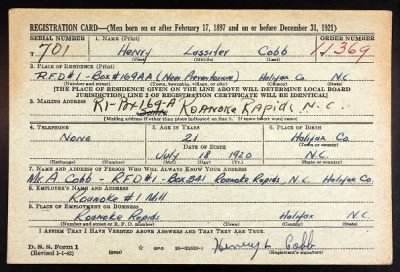 REGISTRATION CARD—(Men born on or after February 17, 1897 and on or before December 31, 1921)
SERIAL NUMBER 1. NAME (Print) ORDER NUMBER
T 701 Henry Lassiter Cobb 11,369
(First) (Middle) (Last)
2. PLACE OF RESIDENCE (Print)
R.F.D #1 - Box #169AA (New) Halifax N.C.
(Number and street) (Town, township, village, or city) (County) (State)
[THE PLACE OF RESIDENCE GIVEN ON THE LINE ABOVE WILL DETERMINE LOCAL BOARD
JURISDICTION; LINE 2 OF REGISTRATION CERTIFICATE WILL BE IDENTICAL]
3. MAILING ADDRESS
R1-Box 169-A Roanoke Rapids, N.C.
[Mailing address if other than place indicated on line 2. If same insert word same]
4. TELEPHONE 5. AGE IN YEARS 6. PLACE OF BIRTH
None 21 Halifax Co.
DATE OF BIRTH (Town or county)
July 18 1920 N.C.
(Exchange) (Number) (Mo.) (Day) (Yr.) (State or country)
7. NAME AND ADDRESS OF PERSON WHO WILL ALWAYS KNOW YOUR ADDRESS
Mr. A Cobb - R.F.D #1 - Box 341 Roanoke Rapids, N.C. Halifax Co.
8. EMPLOYER'S NAME AND ADDRESS
Roanoke #1 Mill
9. PLACE OF EMPLOYMENT OR BUSINESS
Roanoke Rapids Halifax N.C.
(Number and street or R. F. D. number) (Town) (County) (State)
I AFFIRM THAT I HAVE VERIFIED ABOVE ANSWERS AND THAT THEY ARE TRUE.
D. S. S. Form 1
(Revised 1-1-42) GPO Henry L Cobb